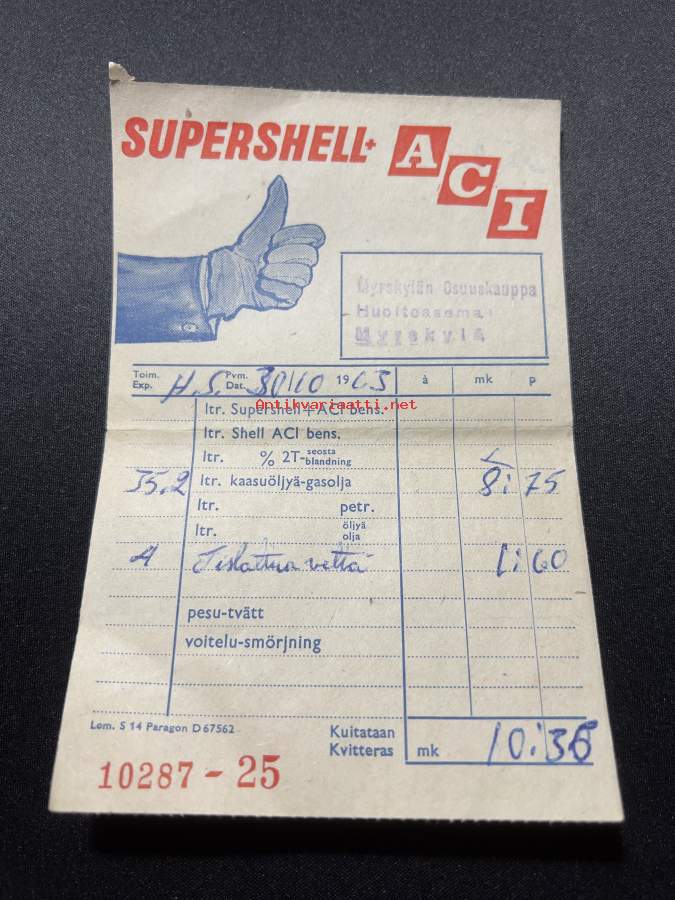 SUPERSHELL+ ACI
Myrskylän Osuuskauppa
Huoltoasema
Myrskylä
Toim. Exp. H.S. Pvm. Dat. 30/10 1963 à mk p
Antikvariaatti.net
ltr. Supershell+ACI bens.
ltr. Shell ACI bens.
ltr. % 2T-seosta blandning
35.2 ltr. kaasuöljyä-gasolja 8:75
ltr. petr.
ltr. öljyä olja
4 Tislattua vettä 1:60
pesu-tvätt
voitelu-smörjning
Lom. S 14 Paragon D 67562
Kuitataan
Kvitteras mk 10:35
10287 - 25